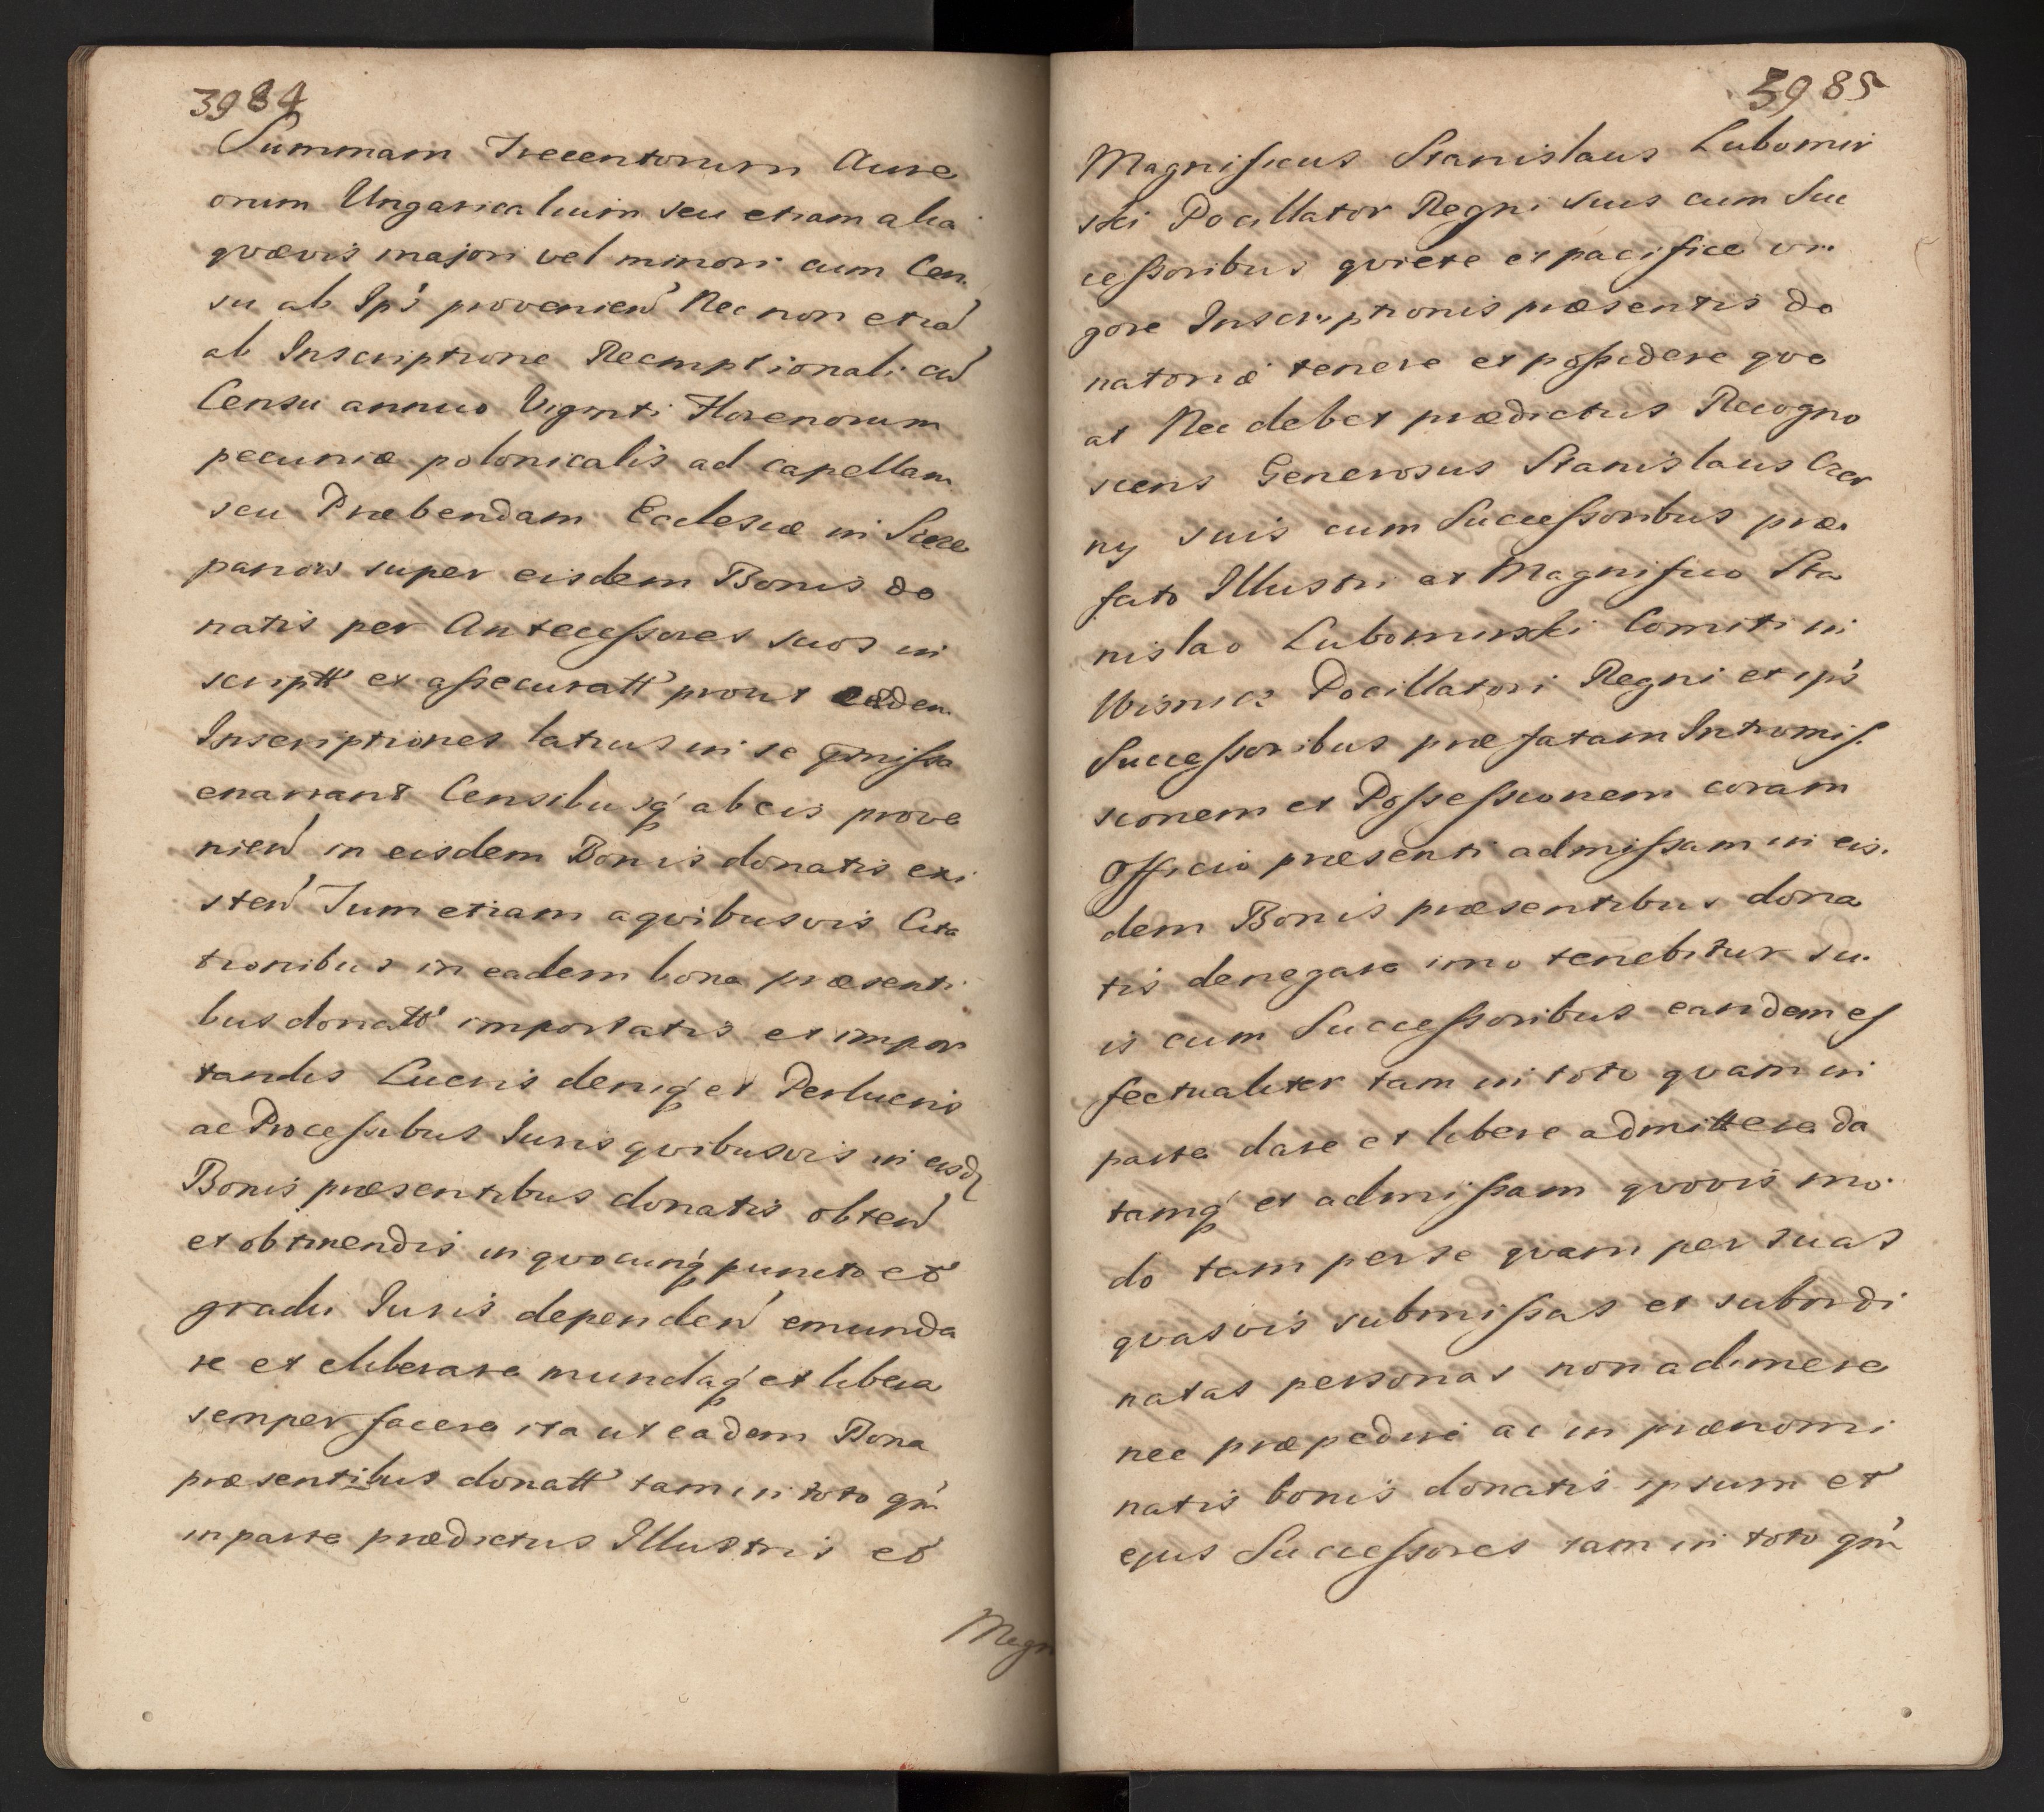 3984
Summam Trecentorum Aure
orum Ungaricalium seu etiam alia
qvævis majori vel minori cum Cen
su ab Ips' provenien' Nec non etia'
ab Inscriptione Reemptionali cu'
Censu annuo Viginti Florenorum
pecuniæ polonicalis ad capellam
seu Præbendam Ecclesiæ in Szcze
panow super eisdem Bonis do
natis per Antecessores suos in
scriptt' et assecuratt' prout eædem
Inscriptiones latius in se præmissa
enarrant Censibusq' ab eis prove
nien' in eisdem Bonis donatis exi
sten' Tum etiam a qvibusvis Cita
tionibus in eadem bona præsenti
bus donatt' importatis et impor
tandis Lucris deniq' et Perlucris
ac Processibus Iuris qvibusvis in eisd
Bonis præsentibus donatis obten'
et obtinendis in qvocunq' puncto et
gradu Iuris dependen' emunda
re et eliberare mundaq' et libera
semper facere ita ut eadem Bona
præsentibus donatt' tam in toto qm'
in parte prædictus Illustris et
Magn
3985
Magnificus Stanislaus Lubomir
ski Pocillator Regni suis cum Suc
cessoribus qviete et pacifice vi
gore Inscriptionis præsentis do
natoriæ tenere et possidere qve
at Nec debet prædictus Recogno
scens Generosus Stanislaus Czer
ny suis cum Successoribus præ
fato Illustri et Magnifico Sta
nislao Lubomirski Comiti in
Wisnicz Pocillatori Regni et ips'
Successoribus præfatam Intromis
sionem et Possessionem coram
Officio præsenti admissam in eis
dem Bonis præsentibus dona
tis denegare imo tenebitur su
is cum Successoribus eandem ef
fectualiter tam in toto qvam in
parte dare et libere admittere da
tamq' et admissam qvovis mo
do tam per se qvam per suas
qvasvis submissas et subordi
natas personas non adimere
nec præpedire ac in prænomi
natis bonis donatis ipsum et
ejus Successores tam in toto qm'